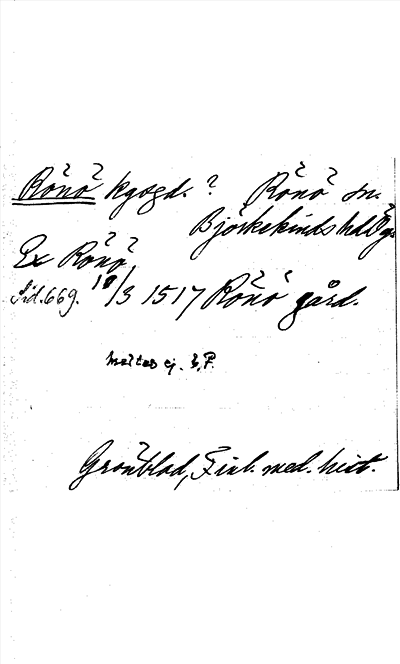 Rönö kgsgd. ? Rönö sn.
Björkekinds hd Ög.
Ex Rönö
Sid. 669. 18/3 1517 Rönö gård.
ej. P.
Grönblad, Finl. med. hist.